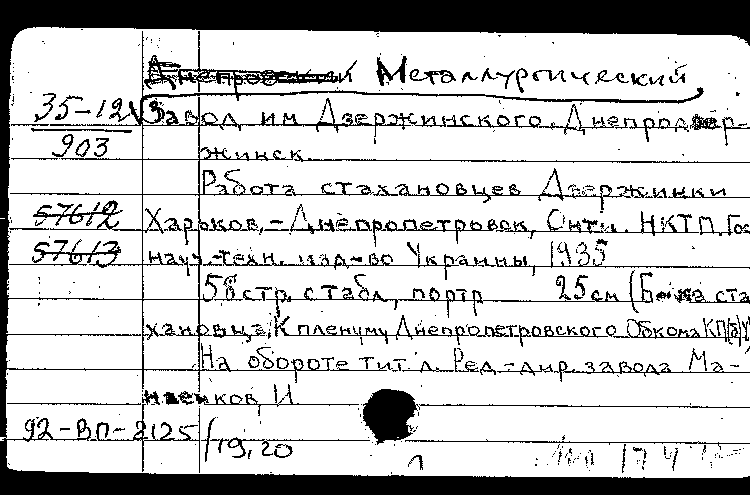 Днепровский Металлургический
35-12
903
Завод им Дзержинского. Днепродзер-
жинск.
Работа стахановцев Дзержинки
57612
Харьков,-Днепропетровск, Онти. НКТП. Гос
57613
науч.-техн. изд-во Украины, 1935
58 стр. с табл., портр 25 см (Б-ка ста
хановца, К пленуму Днепропетровского Обкома КП(б)У
На обороте тит. л. Ред.-дир. завода Ма-
ков, И.
92-ВП-2125/19,20